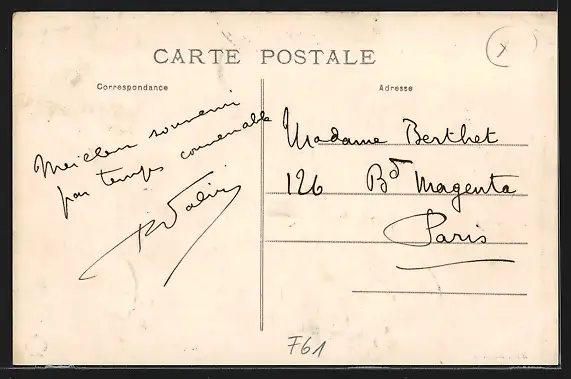 CARTE POSTALE
Correspondance
Adresse
Meilleur souvenir
par temps convenable
Madame Berthet
126 Bd Magenta
Paris
F61